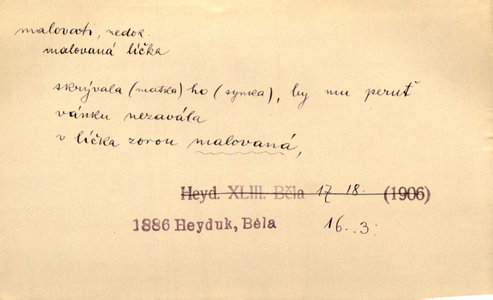 malovati, nedok.
malovaná líčka
skrývala (matka) ho (synka), by mu peruť
vánku nezavála
v líčka zorou malovaná,
Heyd. XLIII. Běla 17 18. (1906)
1886 Heyduk, Běla 16. 3.